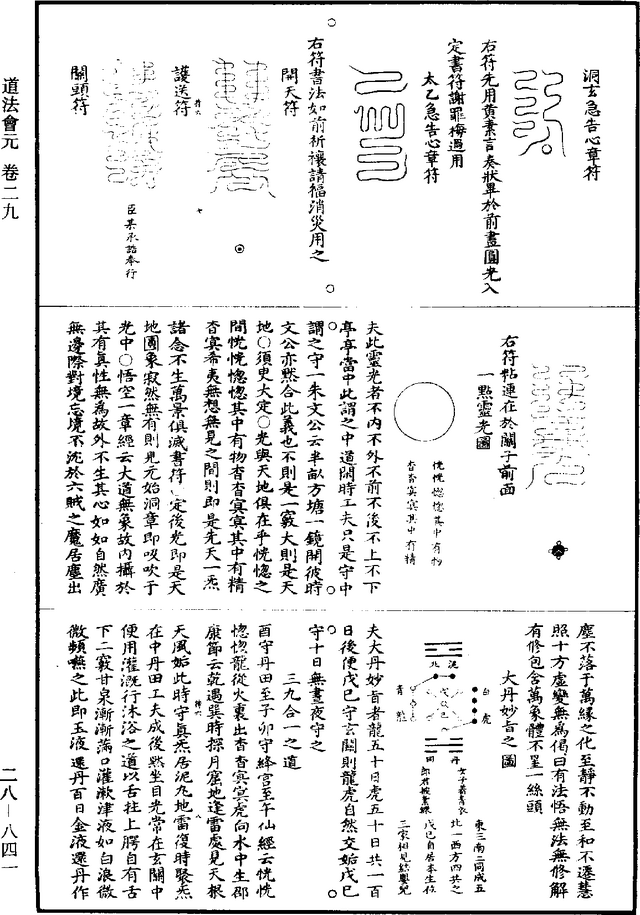 道法會元　卷二九
二八－八四一
洞玄急告心章符
右符先用黄素言奏狀畢於前畫圓光入
定書符謝罪悔過用
太乙急告心章符
右符書法如前祈禳請福消災用之
開天符
護送符
臣某承誥奉行
關頭符
右符帖連在於關子前面
一點靈光圖
恍恍惚惚其中有物
杳杳冥冥其中有精
夫此靈光者不内不外不前不後不上不下
亭亭當中此謂之中道閑時工夫只是守中
謂之守一朱文公云半畝方塘一鏡開彼時
文公亦黙合此義也不則是一竅大則是天
地○須臾大定○光與天地俱在乎恍惚之
間恍恍惚惚其中有物杳杳冥冥其中有精
杳冥希夷無想無見之間則即是先天一炁
諸念不生萬景俱滅書符定後光即是天
地圖象寂然無有則見元始洞章即吸吹于
光中○悟空一章經云大道無象故内攝於
其有真性無為故外不生其心如如自然廣
無邊際對境忘境不沉於六賊之魔居塵出
塵不落于萬緣之化至靜不動至和不遷慧
照十方虛變無為偈曰有法悟無法無修解
有修包含萬象體不罣一絲頭
大丹妙旨之圖
東三南二同成五
北一西方四共之
戊己自居本生位
三家相見結嬰兒
白虎
青龍
夫大丹妙旨者龍五十日虎五十日共一百
日後便戊己守玄關則龍虎自然交姤戊己
守十日無晝夜守之
三九合一之道
酉守丹田至子卯守絳宫至午仙經云恍恍
惚惚龍從火裏出杳杳冥冥虎向水中生邵
康節云乾遇巽時探月窟地逢雷處見天根
天風姤此時守真炁居泥丸地雷復時聚炁
在中丹田工夫成後黙坐目光常在玄關中
便用灌溉行沐浴之道以舌拄上腭自有舌
下二竅甘泉漸漸滿口灌漱津液如白浪微
微頻嚥之此即玉液還丹百日金液還丹作